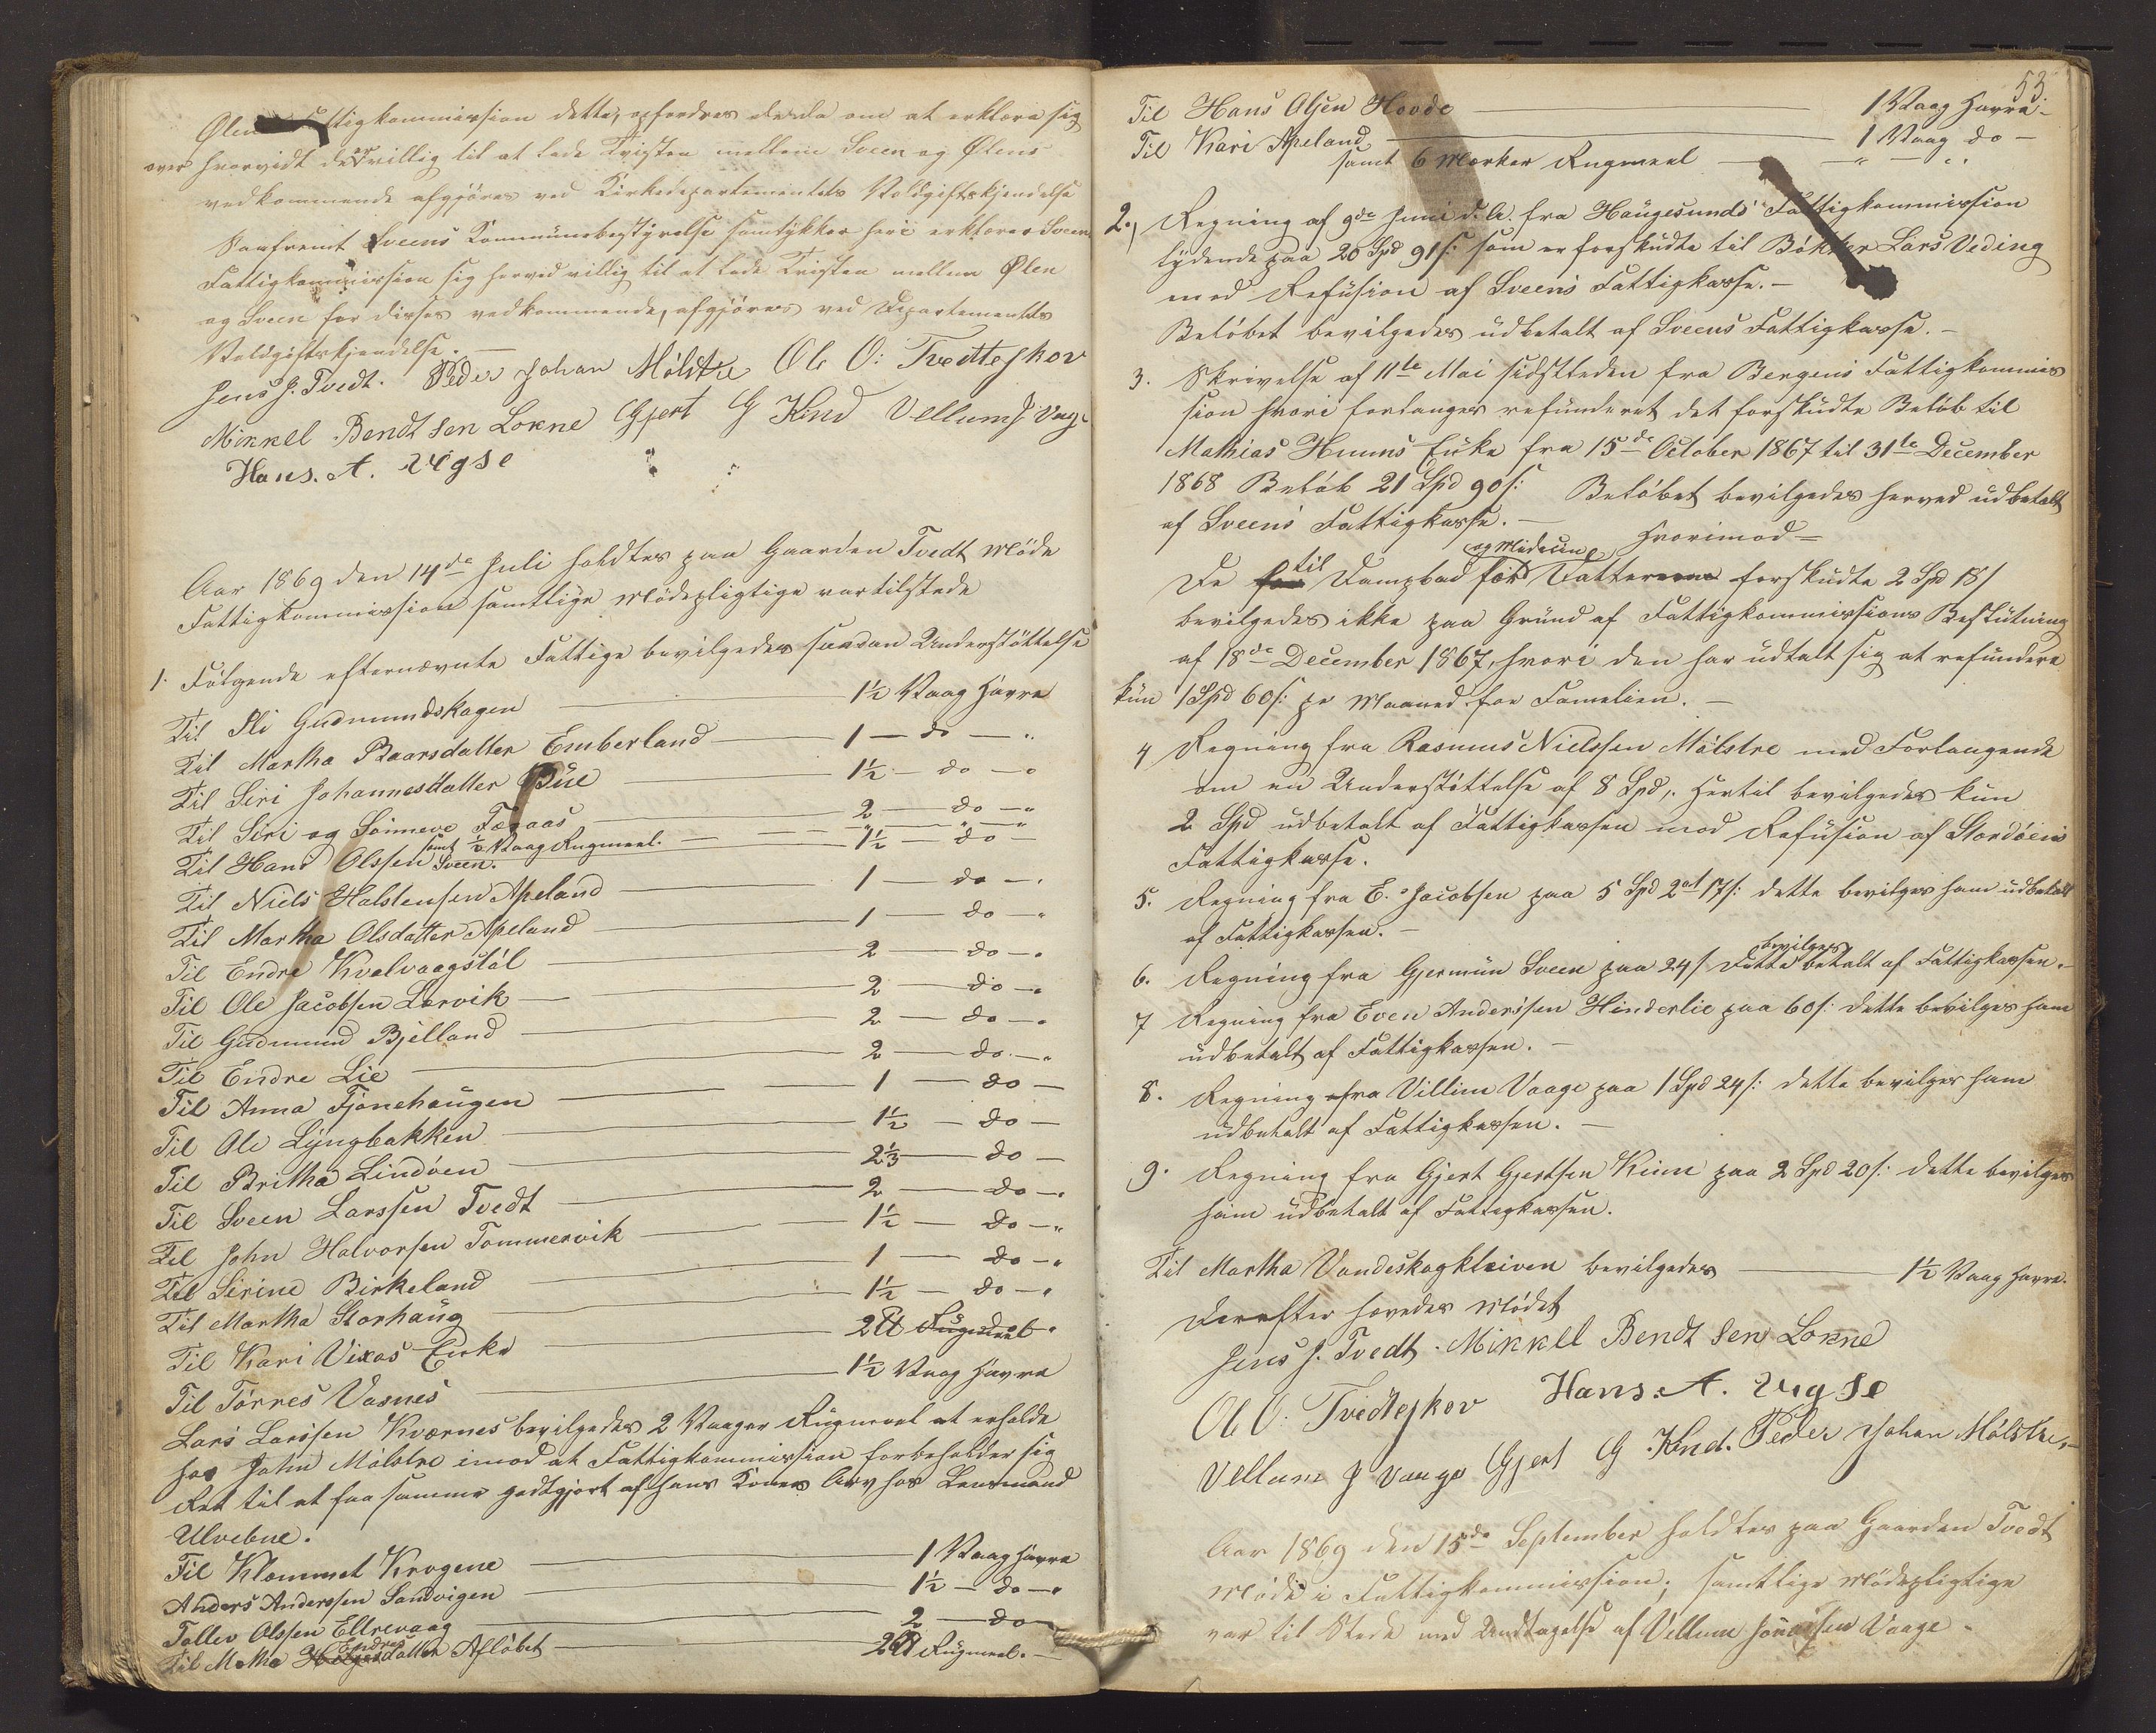 Ølens Fattigkommission dette, opfordres derda om at erklære sig
over hvorvidt de er villig til at lade Tvisten mellem Sveen og Ølens
vedkommende afgjøres ved Kirkedepartementets Voldgiftskjendelse
Saafremt Sveens Kommunebestyrelse samtykker heri erklærer Sveens
Fattigkommission sig herved villig til at lade Tvisten mellem Ølen
og Sveen for disses vedkommende, afgjøres ved Departementets
Voldgiftskjendelse. —
Jens J. Tvedt. Peder Johan Mølstre Ole O: Tvedteskov
Mikkel Bendtsen Lokne Gjert G Kind Vellum J Vaage
Hans. A. Vigse
Aar 1869 den 14de Juli holdtes paa Gaarden Tvedt Møde
Fattigkommission samtlige Mødepligtige var tilstede
1. Følgende efternævnte Fattige bevilgedes saadan Understøttelse
Til Eli Gudmundskagen — 1½ Vaag Havre
Til Martha Baarsdatter Emberland — 1 — do — "
Til Siri Johannesdatter Bue — 1½ — do — "
Til Siri og Sønneve Færaas — 2 — do — "
samt ½ Vaag Rugmeel. — " — " — "
Til Hans Olssen Sveen. — 1½ — do
Til Niels Halstensen Apeland — 1 — do — "
Til Martha Olsdatter Apeland — 1 — do — "
Til Endre Kvalvaagstøl — 2 — do — "
Til Ole Jacobsen Larvik — 2 — do — "
Til Gudmund Bjelland — 2 — do — "
Til Endre Lie — 2 — do — "
Til Anna Fjonehaugen — 1 — do —
Til Ole Lyngbakken — 1½ — do —
Til Britha Lindøen — 2⅓ — do —
Til Sveen Larssen Tvedt — 2 — do — "
Til John Halvorsen Tommervik — 1½ — do — "
Til Sirine Birkeland — 1 — do — "
Til Martha Storhaug — 1½ — do — "
Til Kari Vixas Enke — 2 Rugmeel do "
Til Torres Vasnes — 1½ Vaag Havre
Lars Larssen Kværnes bevilgedes 2 Vaager Rugmeel at erholde
hos John Mølstre imod at Fattigkommission forbeholder sig
Ret til at faa samme godtgjort af hans Kones Arv hos Lensmand
Ulvebne.
Til Klammet Krogene — 1 Vaag Havre
Anders Anderssen Sandvigen — 1½ — do — "
Tollev Olssen Ellrevaag — 2 — do
Til Matha Helgesdatter Endres Afløbet — 2 Rugmeel. —
53
Til Hans Olsen Hovde — 1 Vaag Havre
Til Kari Apeland — 1 Vaag do —
samt 6 Mærker Rugmeel — " — "
2., Regning af 9de Juni d. A. fra Haugesunds Fattigkommission
lydende paa 20 Spd 91 s: som er forskudte til Bøkker Lars Veding
mod Refusion af Sveens Fattigkasse. —
Beløbet bevilgedes udbetalt af Sveens Fattigkasse. —
3. Skrivelse af 11te Mai sidstleden fra Bergens Fattigkommis
sion hvori forlanges refunderet det forskudte Beløb til
Mathias Hmms Enke fra 15de October 1867 til 31te December
1868 Beløb 21 Spd 90 s: Beløbet bevilgedes herved udbetalt
af Sveens Fattigkasse. — Hvorimod =
De for til Dampbad og Medecin for Datteren forskudte 2 Spd 18 s
bevilgedes ikke paa Grund af Fattigkommissions Beslutning
af 18de December 1867, hvori den har udtalt sig at refundere
kun 1 Spd 60 s: pr Maaned for Famelien. —
4 Regning fra Rasmus Nielssen Mølstre med Forlangende
om en Understøttelse af 8 Spd,. Hertil bevilgedes kun
2 Spd udbetalt af Fattigkassen mod Refusion af Stordøens
Fattigkasse.
5. Regning fra E. Jacobsen paa 5 Spd 2 ort 17 s: dette bevilges ham udbetalt
af Fattigkassen. —
6. Regning fra Gjermun Sveen paa 24 s. Dette bevilges betalt af Fattigkassen. —
7 Regning fra Even Anderssen Hinderlie paa 60 s: dette bevilges ham
udbetalt af Fattigkassen. —
8. Regning fra Villim Vaage paa 1 Spd 24 s: dette bevilges ham
udbetalt af Fattigkassen. —
9. Regning fra Gjert Gjertsen Kinn paa 2 Spd 20 s: dette bevilges
ham udbetalt af Fattigkassen.
Til Martha Vandeskogkleiven bevilgedes — 1½ Vaag Havre.
Derefter hævedes Mødet
Jens J. Tvedt. Mikkel Bendtsen Lokne
Ole O: Tvedteskov Hans. A. Vigse
Vellum J Vaage Gjert G Kind. Peder Johan Mølstre, —
Aar 1869 den 15de September holdtes paa Gaarden Tvedt
Møde i Fattigkommission; samtlige Mødepligtige
var til Stede med Undtagelse af Vellum Jonassen Vaage.